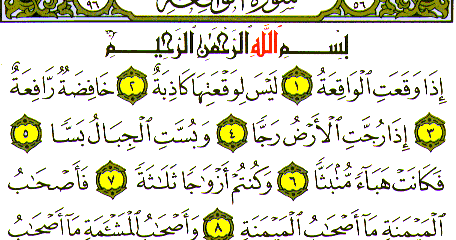 سُورَةُ الوَاقِعَةِ
بِسْمِ اللَّهِ الرَّحْمَٰنِ الرَّحِيمِ
إِذَا وَقَعَتِ ٱلْوَاقِعَةُ ١ لَيْسَ لِوَقْعَتِهَا كَاذِبَةٌ ٢ خَافِضَةٌ رَّافِعَةٌ
٣ إِذَا رُجَّتِ ٱلْأَرْضُ رَجًّا ٤ وَبُسَّتِ ٱلْجِبَالُ بَسًّا ٥
فَكَانَتْ هَبَآءً مُّنۢبَثًّا ٦ وَكُنتُمْ أَزْوَٰجًا ثَلَـٰثَةً ٧ فَأَصْحَـٰبُ
ٱلْمَيْمَنَةِ مَآ أَصْحَـٰبُ ٱلْمَيْمَنَةِ ٨ وَأَصْحَـٰبُ ٱلْمَشْـَٔمَةِ مَآ أَصْحَـٰبُ